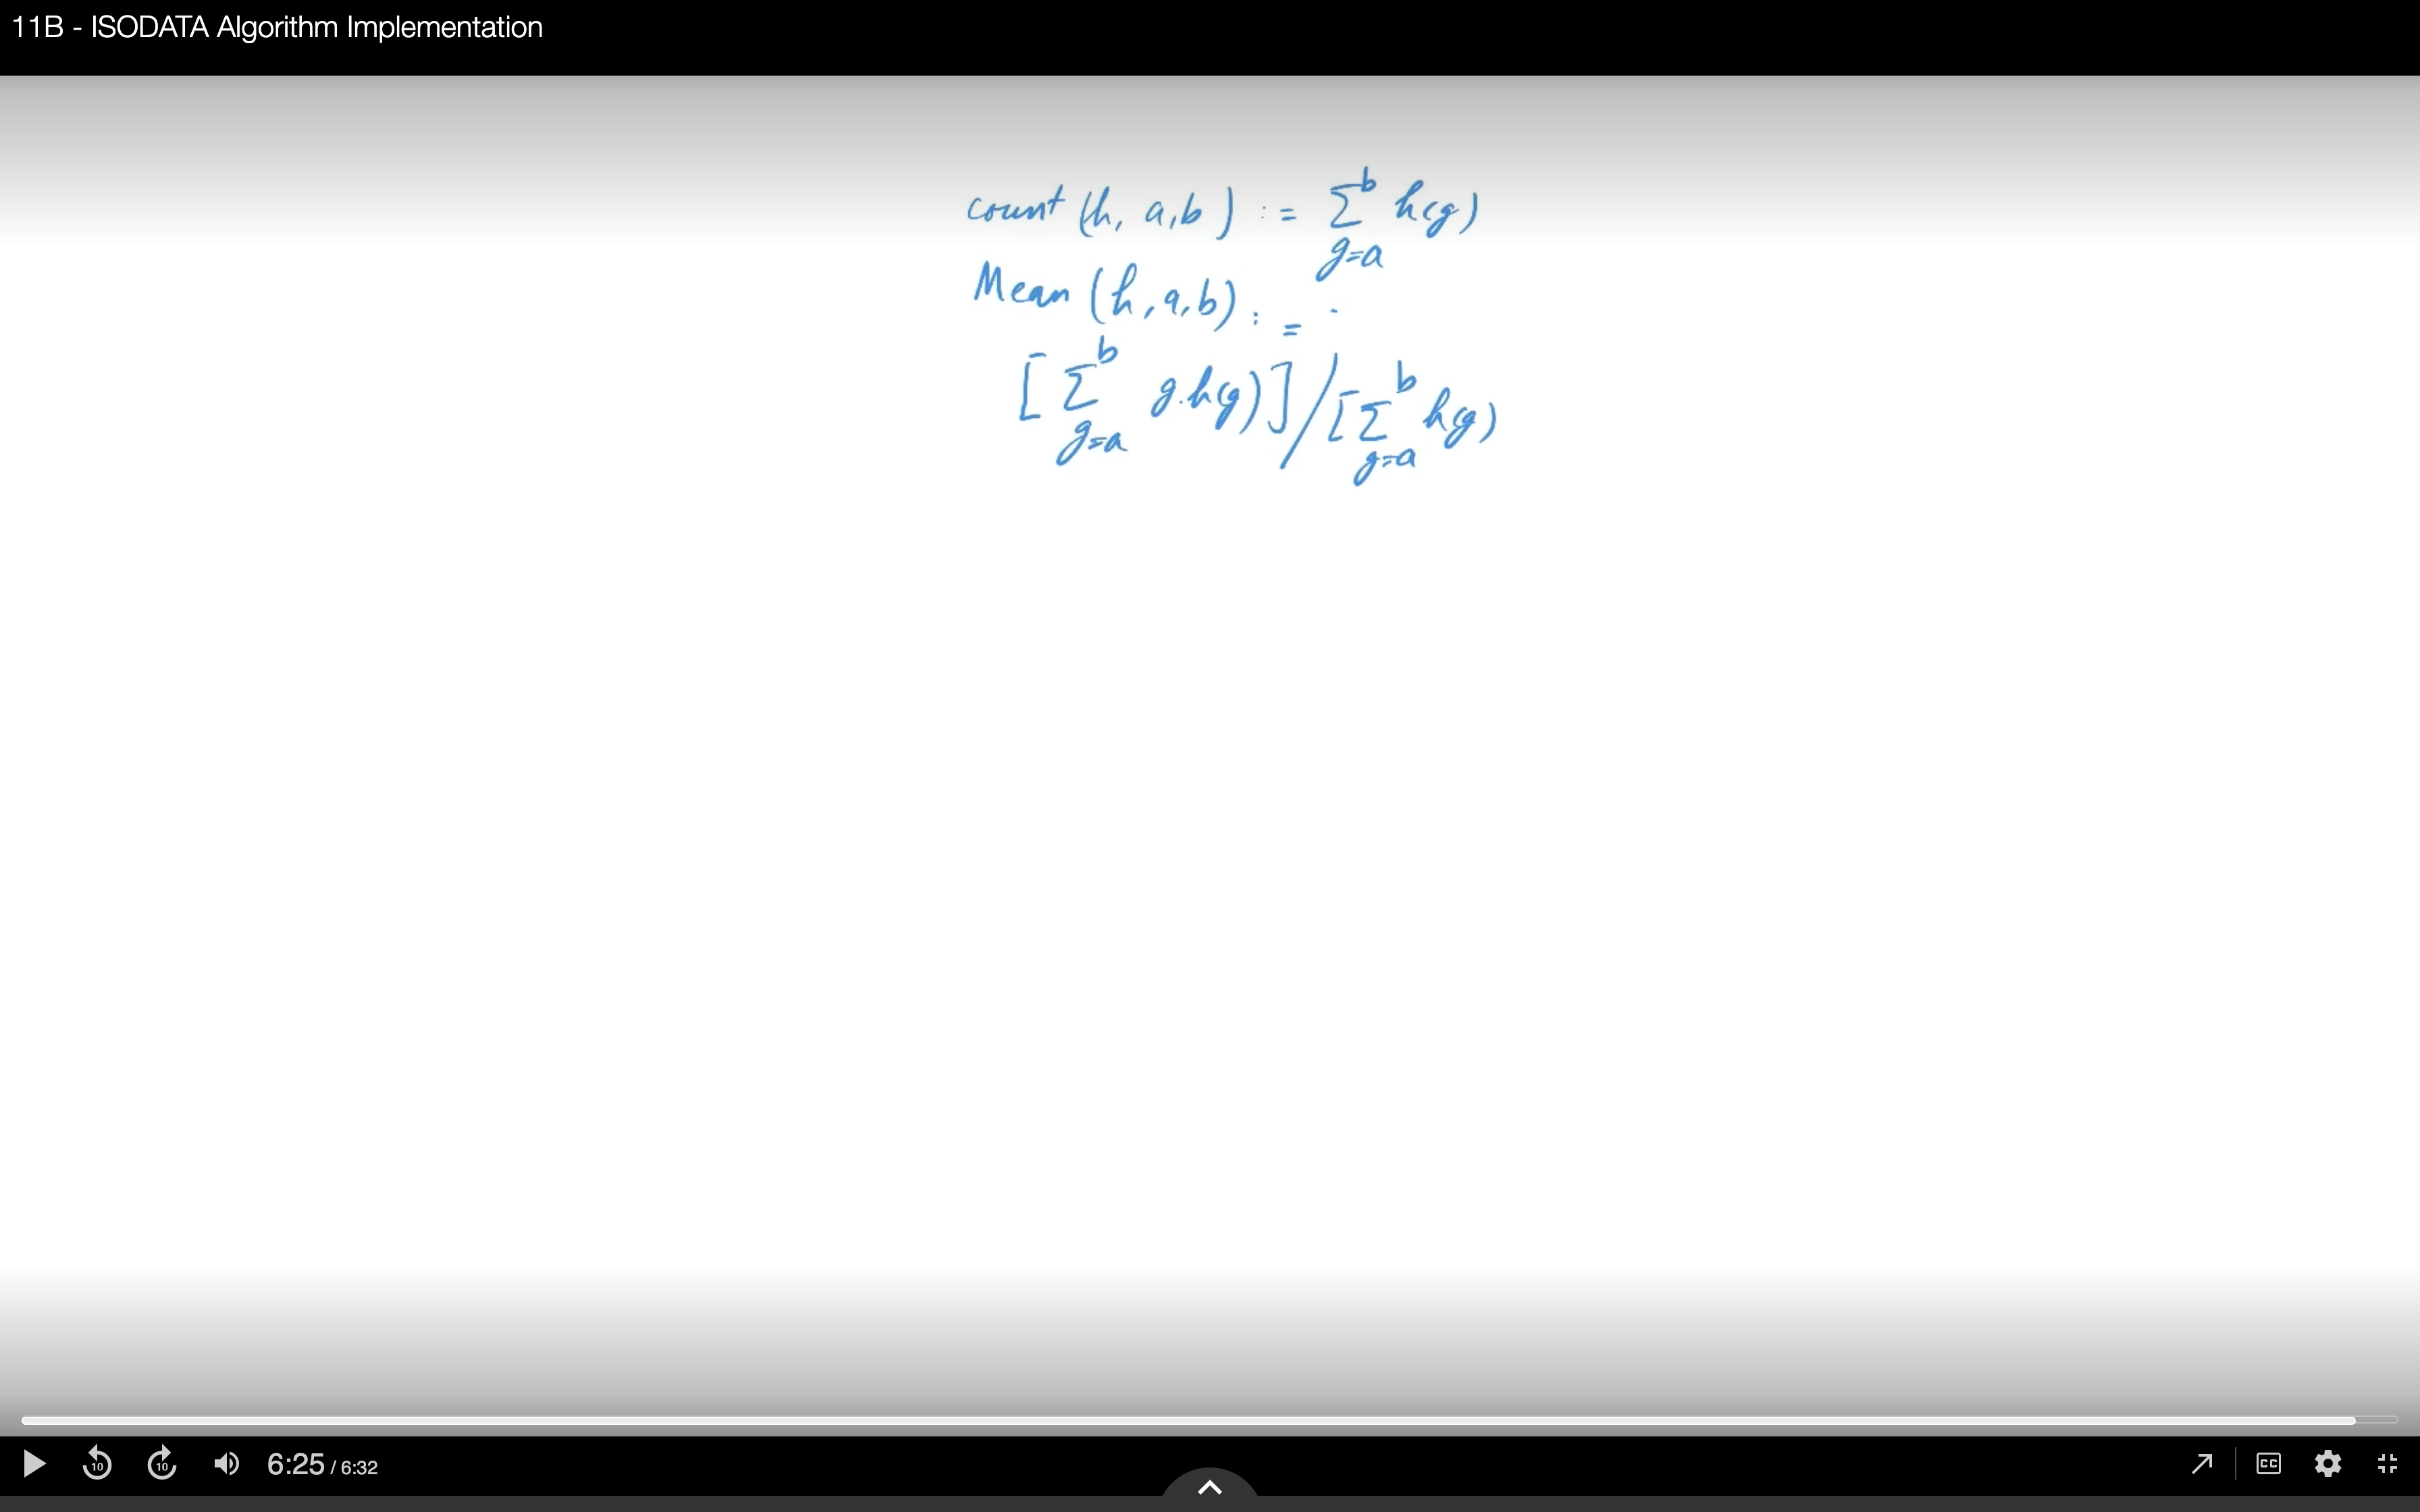 11B - ISODATA Algorithm Implementation
count (h, a,b) := Σ_{g=a}^{b} h(g)
Mean (h,a,b) :=
[Σ_{g=a}^{b} g.h(g)]/[Σ_{g=a}^{b} h(g)
10
10
6:25 / 6:32
CC